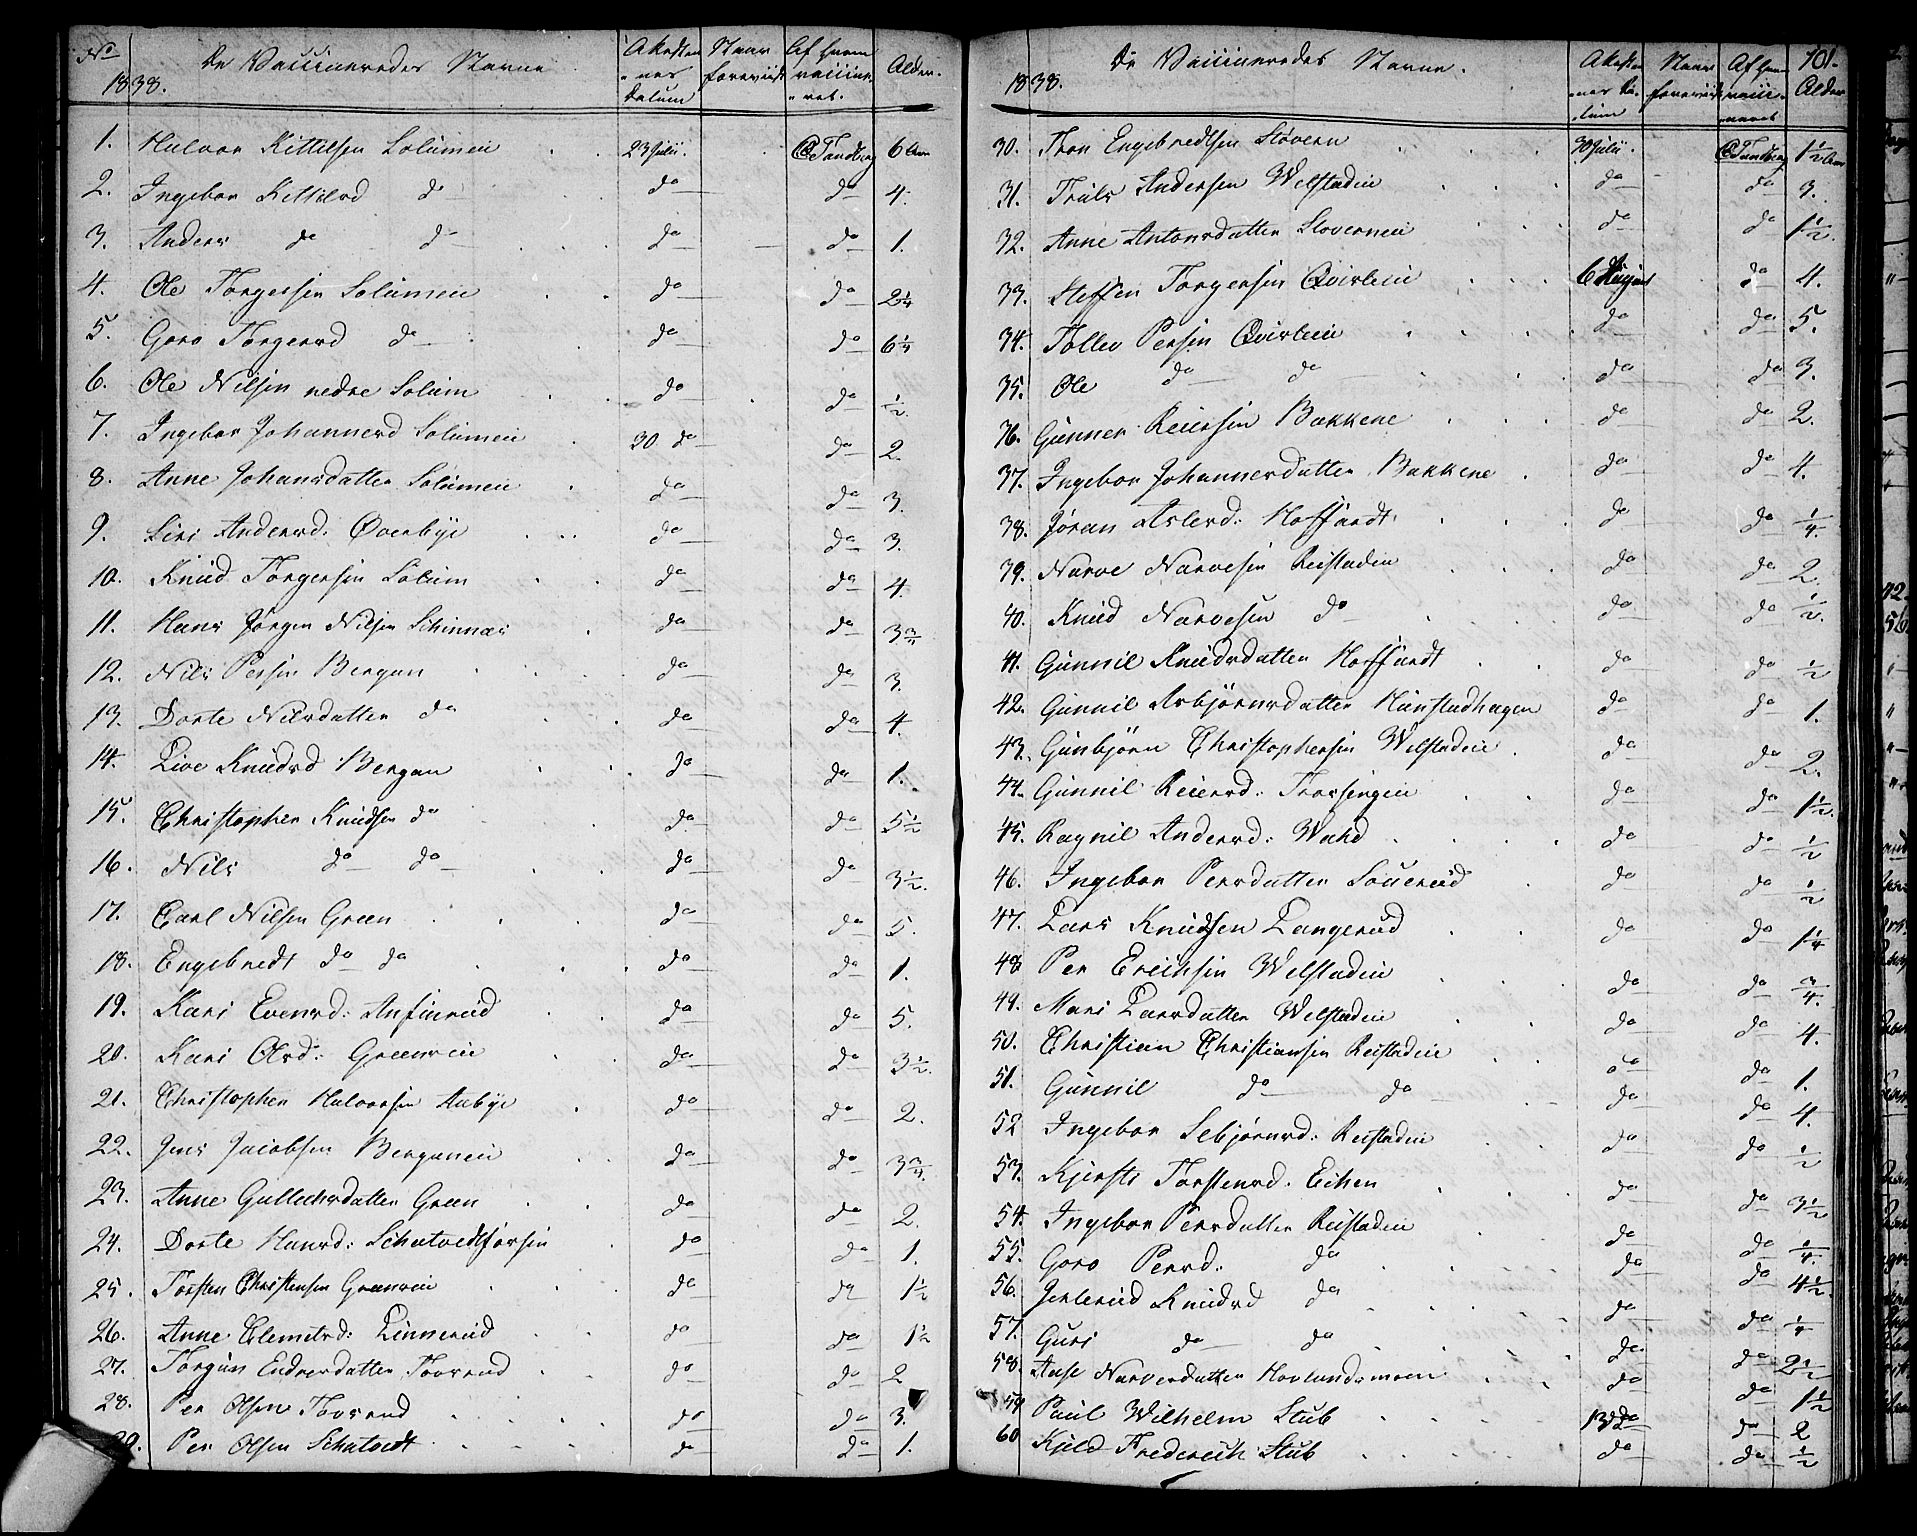 No De Vaccineredes Navne Attesternes Datum Naar foreviist Af hvem vaccineret. Alder.
1838.
1. Halvor Kittilsen Solumeie 23 Julii. C Tandberg 6 Aar
2. Ingebor Kittilsd do do do 4.
3. Anders do do do do 1.
4. Ole Torgersen Solumeie do do 2 1/4
5. Goro Torgersd do do do 6 1/4
6. Ole Nilsen nedre Solum do do 1/2.
7. Ingebor Johannesd Solumeie 30 do do 2.
8. Anne Johansdatter Solumeie do do 3.
9. Siri Andersd: Overbye do do 3.
10. Knud Torgersen Solum do do 4.
11. Hans Jørgen Nilsen Schinnæs do do 3 3/4
12. Nils Persen Bergan do do 3.
13. Dorte Nilsdatter do do do 4.
14. Live Knudsd Bergan do do 1.
15. Christopher Knudsen do do do 5 1/2
16. Nils do do do do 3 1/2.
17. Carl Nilsen Green do do 5.
18. Engebredt do do do do 1.
19. Kari Evensd: Anfinrud do do 5.
20. Kari Olsd: Greenseie do do 3 1/2.
21. Christopher Halvorsen Aabye do do 2.
22. Jens Jacobsen Berganeie do do 3 3/4.
23. Anne Gulleichsdatter Green do do 2.
24. Dorte Hansd: Schatvedtfossen do do 1.
25. Torsten Christensen Greenseie do do 1 1/2
26. Anne Clemetsd: Linnerud do do 1 1/2
27. Torgun Endresdatter Tovsrud do do 2
28. Per Olsen Tovsrud do do 3.
29. Per Olsen Schatvedt do do 1.
De Vaccineredes Navne. Attesternes Datum Naar foreviist Af hvem vaccineret 101. Alder
1838.
30. Thor Engebredtsen Støvern 30 Julii. C Tandberg 1 1/2 Aar
31. Truls Andersen Welstadeie do do 3.
32. Anne Antonsdatter Stoverneie do do 1 1/2.
33. Steffen Torgersen Qvisleie 6 August do 4.
34. Tollev Persen Qvisleie do do 5.
35. Ole do do do do 3.
36. Gunner Reiersen Bakkene do do 2.
37. Ingebor Johannesdatter Bakkene do do 4.
38. Jøran Aslesd: Hoffardt do do 1/4.
39. Narve Narvesen Reistadeie do do 2.
40. Knud Narvesen do do do 1/2.
41. Gunnil Knudsdatter Hoffardt do do 1/2
42. Gunnil Asbjørnsdatter Hunstadhagen do do 1.
43. Gunbjørn Christophersen Welstadeie do do 2.
44. Gunnil Reiersd: Trossingeie do do 1 1/2.
45. Ragnil Andersd: Wahd do do 1/2
46. Ingebor Persdatter Souerud do do 1/2
47. Lars Knudsen Langerud do do 1 1/4
48 Per Erichsen Welstadeie do do 3/4.
49. Mari Larsdatter Welstadeie do do 4.
50. Christian Christiansen Reistadeie do do 1.
51. Gunnil do do do do 4.
52 Ingebor Sebjørnsd: Reistadeie do do 1/2
53. Kjersti Torstensd. Eichen do do 3 1/2
54. Ingebor Persdatter Reistadeie do do 1/4.
55. Goro Persd: do do do 4 1/2.
56. Jertrud Knudsd do do do 1/4
57. Guri do do do do 2 1/2
58. Aase Narvesdatter Hovlandsmoen do do 1 1/2
59 Paul Wilhelm Stub 13 do do 2
60 Kield Frederich Stub do do 1/2